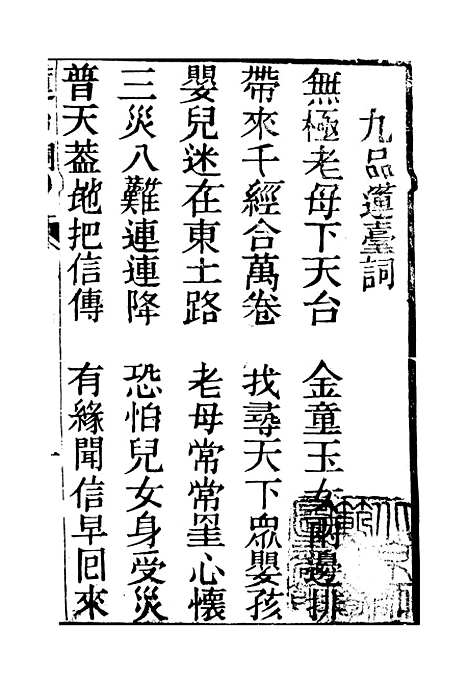 九品蓮臺詞
無極老母下天台　金童玉女兩邊排
帶來千經合萬卷　找尋天下眾嬰孩
嬰兒迷在東土路　老母常常罣心懷
三災八難連連降　恐怕兒女身受災
普天蓋地把信傳　有緣聞信早回來